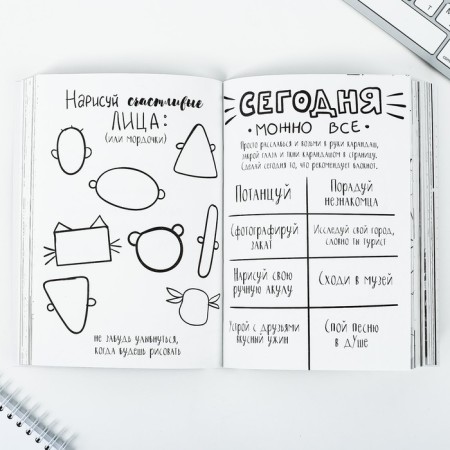 Нарисуй счастливые
ЛИЦА:
(или мордочки)
не забудь улыбнуться,
когда будешь рисовать
СЕГОДНЯ
МОЖНО ВСЕ
Просто расслабься и возьми в руки карандаш,
закрой глаза и ткни карандашом в страницу.
Сделай сегодня то, что рекомендует блокнот.
Потанцуй
Порадуй
незнакомца
Сфотографируй
закат
Исследуй свой город,
словно ты турист
Нарисуй свою
ручную акулу
Сходи в музей
Устрой с друзьями
вкусный ужин
Спой песню
в душе